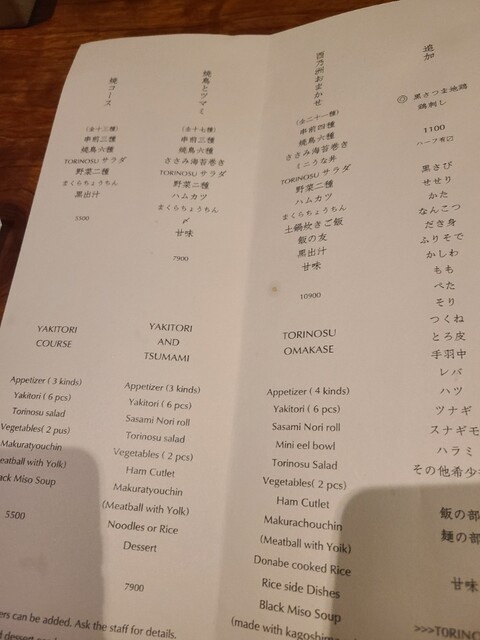 焼コース
(全十三種)
串前三種
焼鳥六種
TORINOSU サラダ
野菜二種
まくらちょうちん
黒出汁
5500
焼鳥とツマミ
(全十七種)
串前三種
焼鳥六種
ささみ海苔巻き
TORINOSU サラダ
野菜二種
ハムカツ
まくらちょうちん
〆
甘味
7900
酉乃洲おまかせ
(全二十一種)
串前四種
焼鳥六種
ささみ海苔巻き
ミニうな丼
TORINOSU サラダ
野菜二種
ハムカツ
まくらちょうちん
土鍋炊きご飯
飯の友
黒出汁
甘味
10900
追加
◎ 黒さつま地鶏
鶏刺し
1100
ハーフ有
黒さび
せせり
かた
なんこつ
だき身
ふりそで
かしわ
もも
ぺた
そり
つくね
とろ皮
手羽中
レバ
ハツ
ツナギ
スナギモ
ハラミ
その他希少
飯の部
麺の部
甘味
>>>TORINO
YAKITORI
COURSE
Appetizer ( 3 kinds)
Yakitori ( 6 pcs)
Torinosu salad
Vegetables ( 2 pus)
Makuratyouchin
eatball with Yolk)
ack Miso Soup
5500
YAKITORI
AND
TSUMAMI
Appetizer (3 kinds)
Yakitori ( 6 pcs)
Sasami Nori roll
Torinosu salad
Vegetables ( 2 pcs)
Ham Cutlet
Makuratyouchin
(Meatball with Yolk)
Noodles or Rice
Dessert
7900
TORINOSU
OMAKASE
Appetizer ( 4 kinds)
Yakitori ( 6 pcs)
Sasami Nori roll
Mini eel bowl
Torinosu Salad
Vegetables( 2 pcs)
Ham Cutlet
Makurachouchin
(Meatball with Yoik)
Donabe cooked Rice
Rice side Dishes
Black Miso Soup
(made with kagoshima
ers can be added. Ask the staff for details.
d dessert